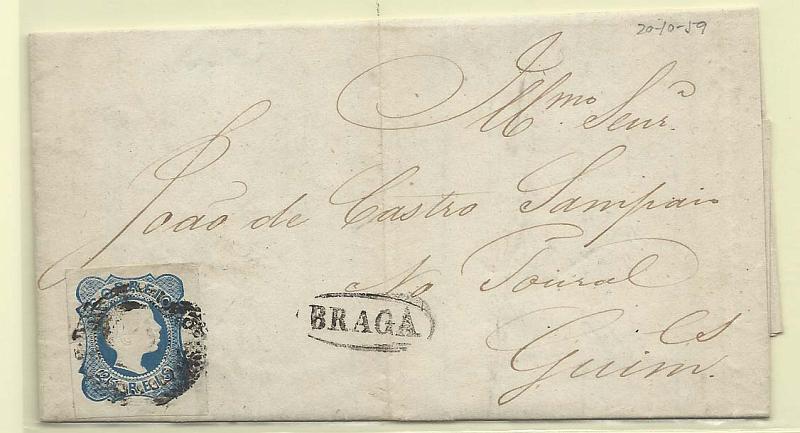 20-10-59
Illmo Senr.
João de Castro Sampaio
No Toural
Guim.es
BRAGA
CORREIO
25 REIS